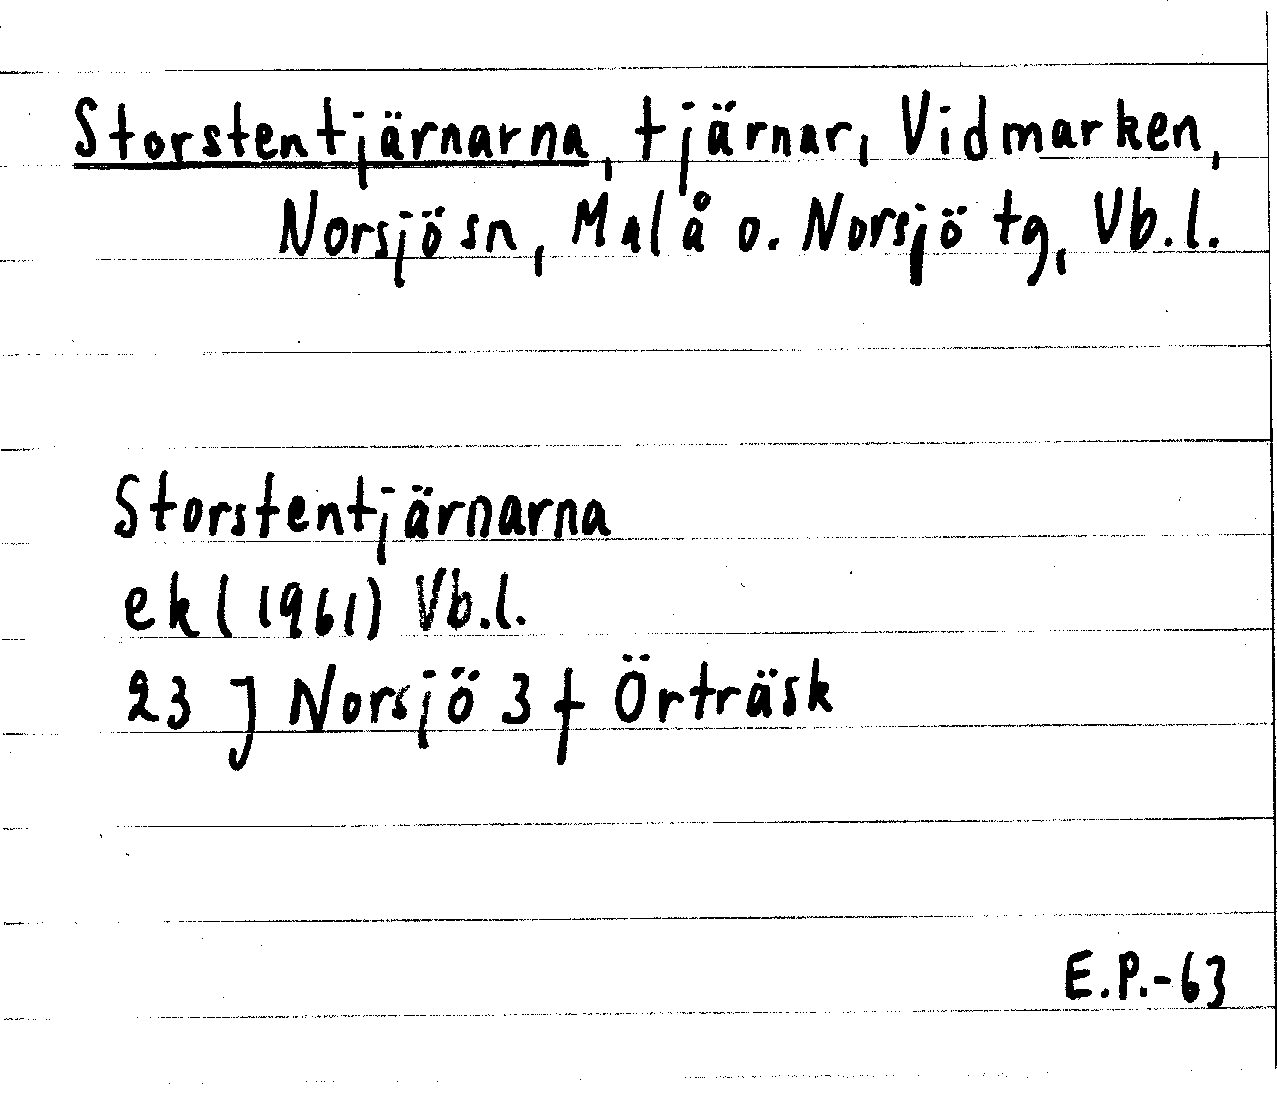 Storstentjärnarna, tjärnar, Vidmarken,
Norsjö sn, Malå o. Norsjö tg, Vb.l.
Storstentjärnarna
ek (1961) Vb.l.
23 J Norsjö 3 f Örträsk
E.P.-63